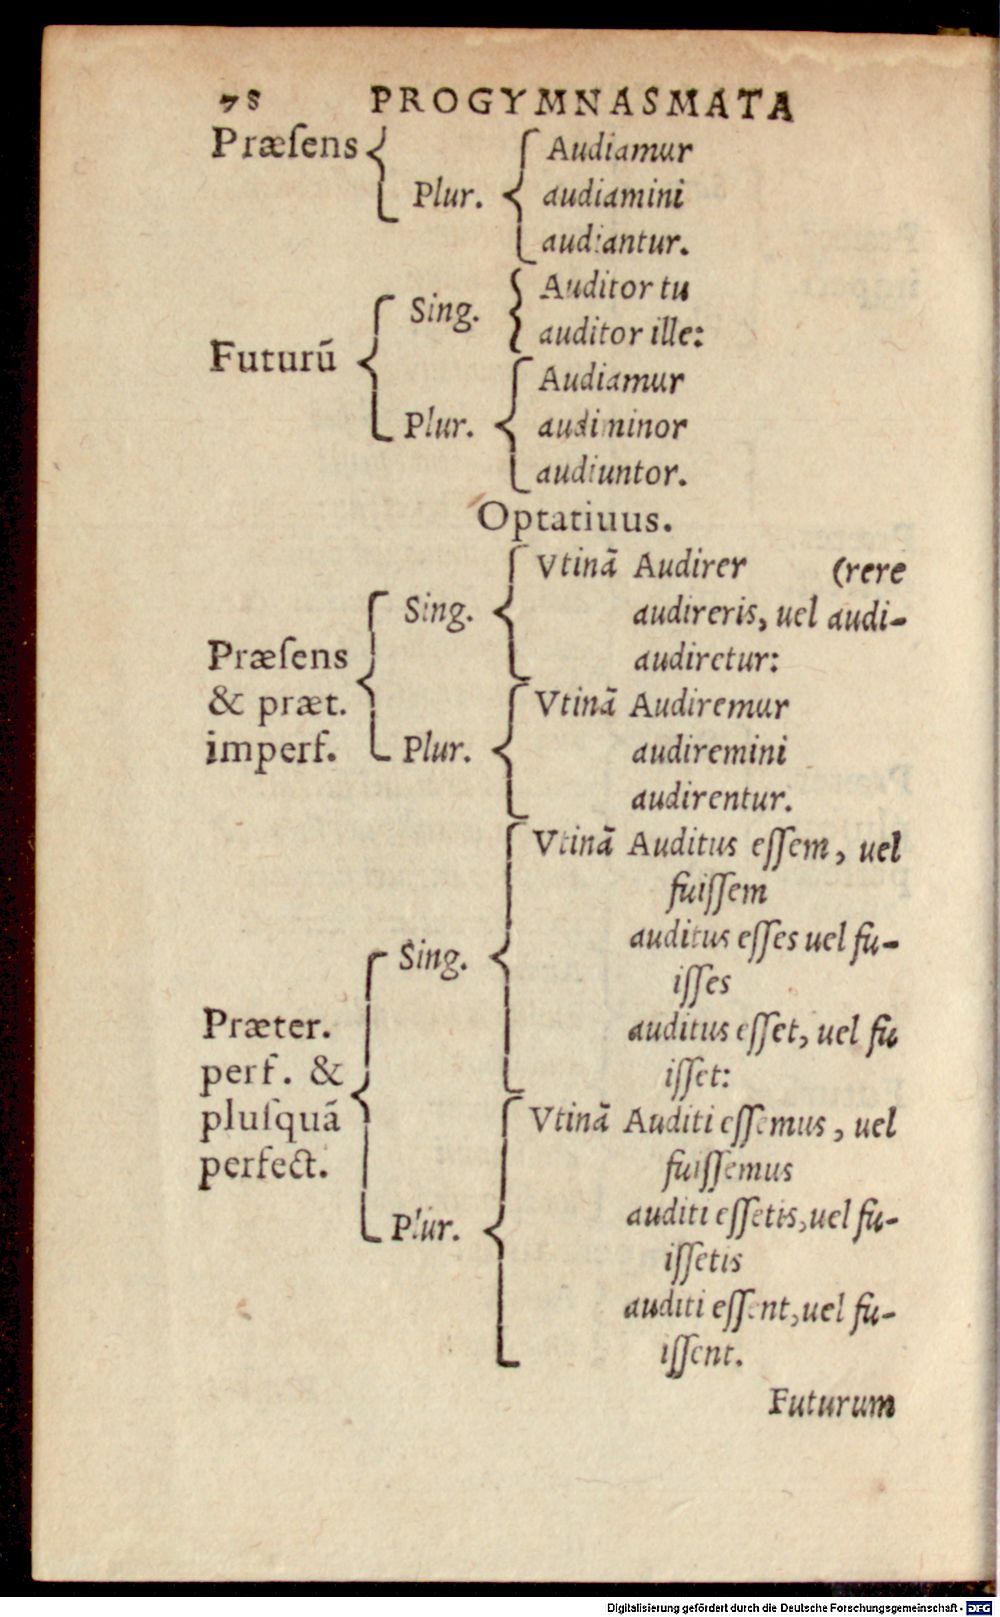 78 PROGYMNASMATA
Præſens
Plur.
Audiamur
audiamini
audiantur.
Futurū
Sing.
Auditor tu
auditor ille:
Plur.
Audiamur
audiminor
audiuntor.
Optatiuus.
Præſens
& præt.
imperf.
Sing.
Vtinā Audirer (rere
audireris, uel audi-
audiretur:
Plur.
Vtinā Audiremur
audiremini
audirentur.
Præter.
perf. &
pluſquā
perfect.
Sing.
Vtinā Auditus eſſem, uel
fuiſſem
auditus eſſes uel fu-
iſſes
auditus eſſet, uel fu
iſſet:
Plur.
Vtinā Auditi eſſemus, uel
fuiſſemus
auditi eſſetis, uel fu-
iſſetis
auditi eſſent, uel fu-
iſſent.
Futurum
Digitalisierung gefördert durch die Deutsche Forschungsgemeinschaft - DFG